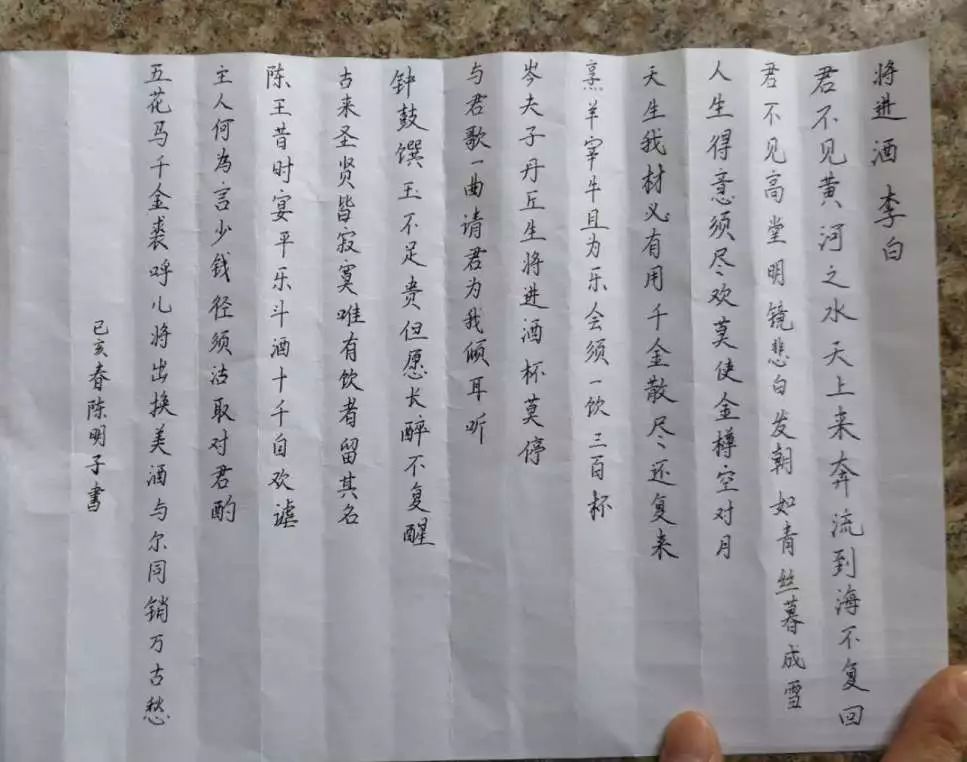 将进酒 李白
君不见黄河之水天上来奔流到海不复回
君不见高堂明镜悲白发朝如青丝暮成雪
人生得意须尽欢莫使金樽空对月
天生我材必有用千金散尽还复来
烹羊宰牛且为乐会须一饮三百杯
岑夫子丹丘生将进酒杯莫停
与君歌一曲请君为我倾耳听
钟鼓馔玉不足贵但愿长醉不复醒
古来圣贤皆寂寞唯有饮者留其名
陈王昔时宴平乐斗酒十千自欢谑
主人何为言少钱径须沽取对君酌
五花马千金裘呼儿将出换美酒与尔同销万古愁
己亥春陈明子书